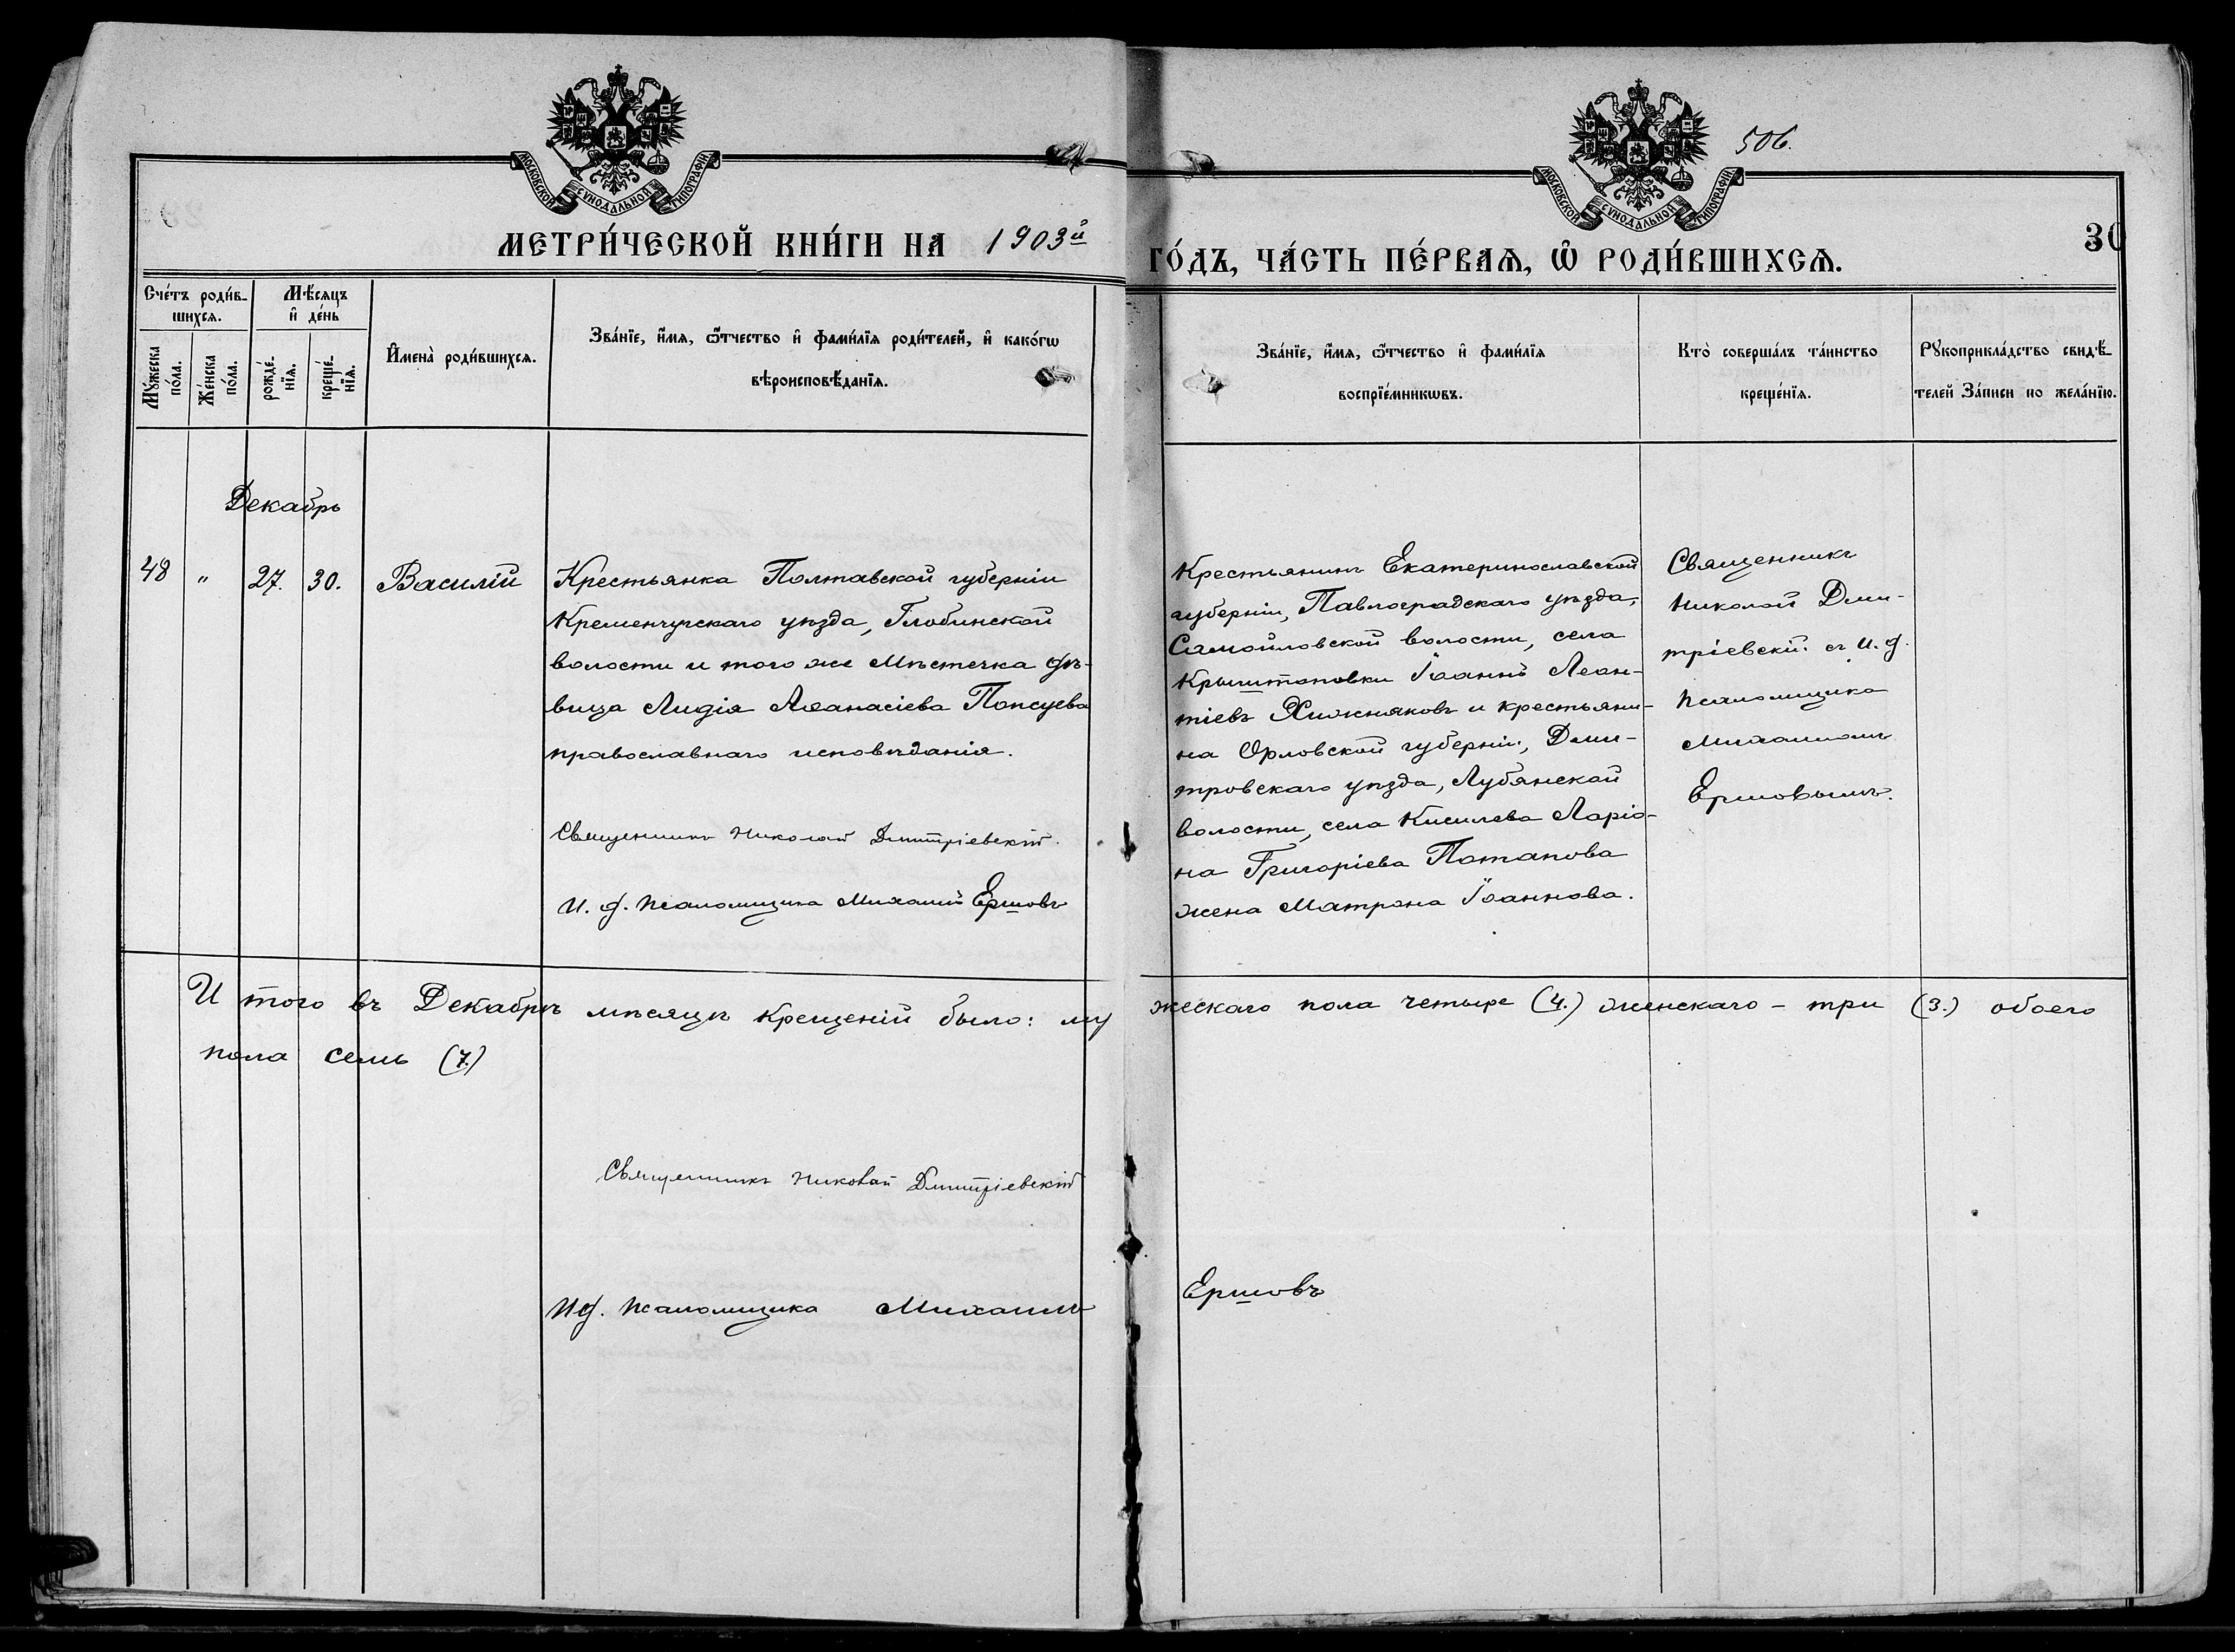 506.
30
МОСКОВСКОЙ СУНОДАЛЬНОЙ ТИПОГРАФІИ
МОСКОВСКОЙ СУНОДАЛЬНОЙ ТИПОГРАФІИ
МЕТРИ́ЧЕСКОЙ КНИ́ГИ НА 1903й ГО́ДЪ, ЧА́СТЬ ПЕ́РВАЯ, Ѡ РОДИ́ВШИХСЯ.
Сче́тъ роди́в-
шихся.
Мꙋжеска
по́ла.
Же́нска
по́ла.
Мѣ́сяцъ
и҆ де́нь
рожде́-
нїя.
креще́-
нїя.
И҆мена̀ роди́вшихся.
Зва́нїе, и҆́мя, ѻ҆́тчество и҆ фами́лїя роди́телей, и҆ како́гѡ
вѣроисповѣ́данїя.
Зва́нїе, и҆́мя, ѻ҆́тчество и҆ фами́лїя
воспрїе́мникѡвъ.
Кто̀ соверша́лъ та́инство
креще́нїя.
Рꙋкоприкла́дство свидѣ́-
телей за́писи по жела́нїю.
Декабрь
48 „ 27. 30. Василій
Крестьянка Полтавской губерніи
Кременчугскаго уѣзда, Глобинской
волости и того же Мѣстечка дѣ-
вица Лидія Аѳанасіева Попсуева
православнаго исповѣданія.
Священникъ Николай Дмитріевскій.
И. д. псаломщика Михаилъ Ершовъ
Крестьянинъ Екатеринославской
губерніи, Павлоградскаго уѣзда,
Самойловской волости, села
Крыштоповки Іоаннъ Леон-
тіевъ Хижняковъ и крестьяни-
на Орловской губерніи, Дми-
тровскаго уѣзда, Лубянской
волости, села Кисилева Ларіо-
на Григоріева Потапова
жена Матрона Іоаннова.
Священникъ
Николай Дми-
тріевскій съ и. д.
псаломщика
Михаиломъ
Ершовымъ.
И того въ Декабрѣ мѣсяцѣ крещеній было: мужескаго пола четыре (4.) женскаго – три (3.) обоего
пола семь (7.)
Священникъ Николай Дмитріевскій
И д. псаломщика Михаилъ Ершовъ